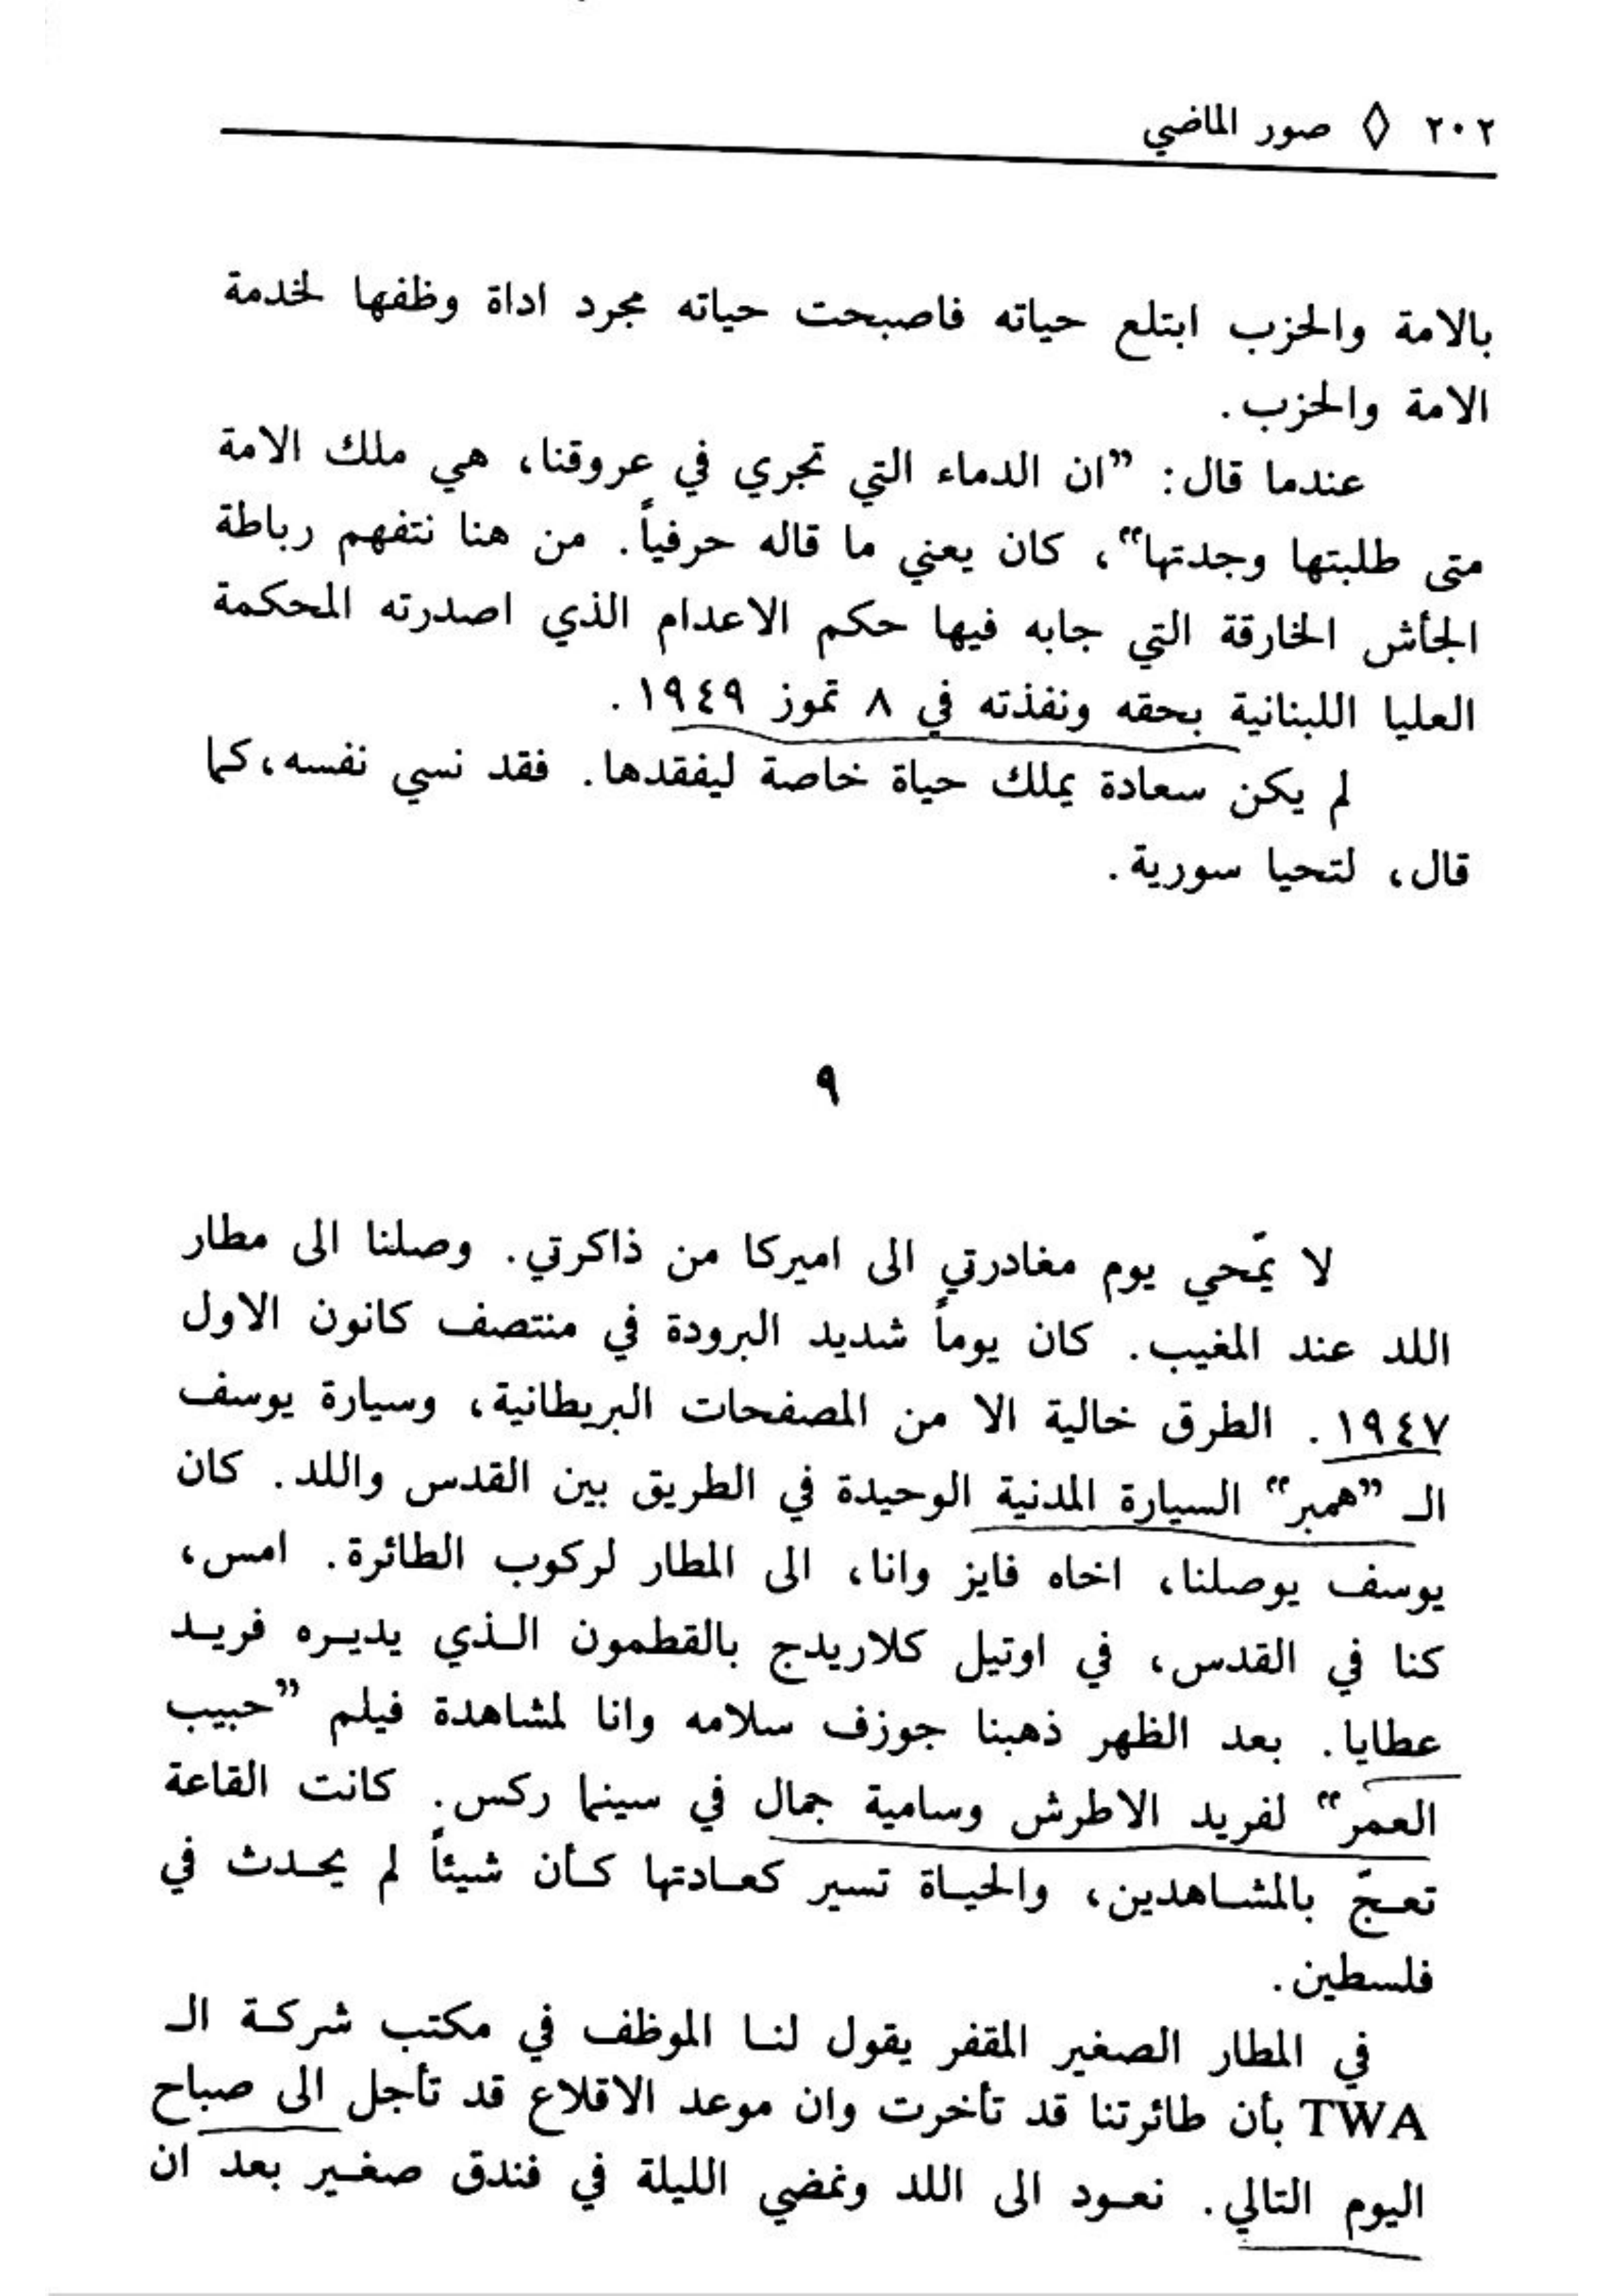 ٢٠٢ ◊ صور الماضي
بالامة والحزب ابتلع حياته فاصبحت حياته مجرد اداة وظفها لخدمة
الامة والحزب.
عندما قال: ”ان الدماء التي تجري في عروقنا، هي ملك الامة
متى طلبتها وجدتها“، كان يعني ما قاله حرفياً. من هنا نتفهم رباطة
الجأش الخارقة التي جابه فيها حكم الاعدام الذي اصدرته المحكمة
العليا اللبنانية بحقه ونفذته في ٨ تموز ١٩٤٩.
لم يكن سعادة يملك حياة خاصة ليفقدها. فقد نسي نفسه، كما
قال، لتحيا سورية.
٩
لا يمّحي يوم مغادرتي الى اميركا من ذاكرتي. وصلنا الى مطار
اللد عند المغيب. كان يوماً شديد البرودة في منتصف كانون الاول
١٩٤٧. الطرق خالية الا من المصفحات البريطانية، وسيارة يوسف
الـ ”همبر“ السيارة المدنية الوحيدة في الطريق بين القدس واللد. كان
يوسف يوصلنا، اخاه فايز وانا، الى المطار لركوب الطائرة. امس،
كنا في القدس، في اوتيل كلاريدج بالقطمون الـذي يديـره فريـد
عطايا. بعد الظهر ذهبنا جوزف سلامه وانا لمشاهدة فيلم ”حبيب
العمر“ لفريد الاطرش وسامية جمال في سينما ركس. كانت القاعة
تعـجّ بالمشـاهدين، والحيـاة تسير كعـادتها كـأن شيئاً لم يحـدث في
فلسطين.
في المطار الصغير المقفر يقول لنـا الموظف في مكتب شركـة الـ
TWA بأن طائرتنا قد تأخرت وان موعد الاقلاع قد تأجل الى صباح
اليوم التالي. نعـود الى اللد ونمضي الليلة في فندق صغـير بعد ان